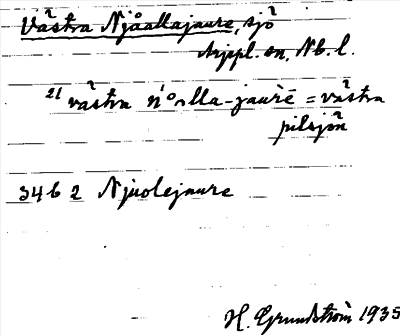 Västra Njåallajaure, sjö
Arjepl. sn, Nb. l.
21 västra ńoalla-jaurē = västra
pilsjön
3462 Njuolejaure
H. Grundström 1935